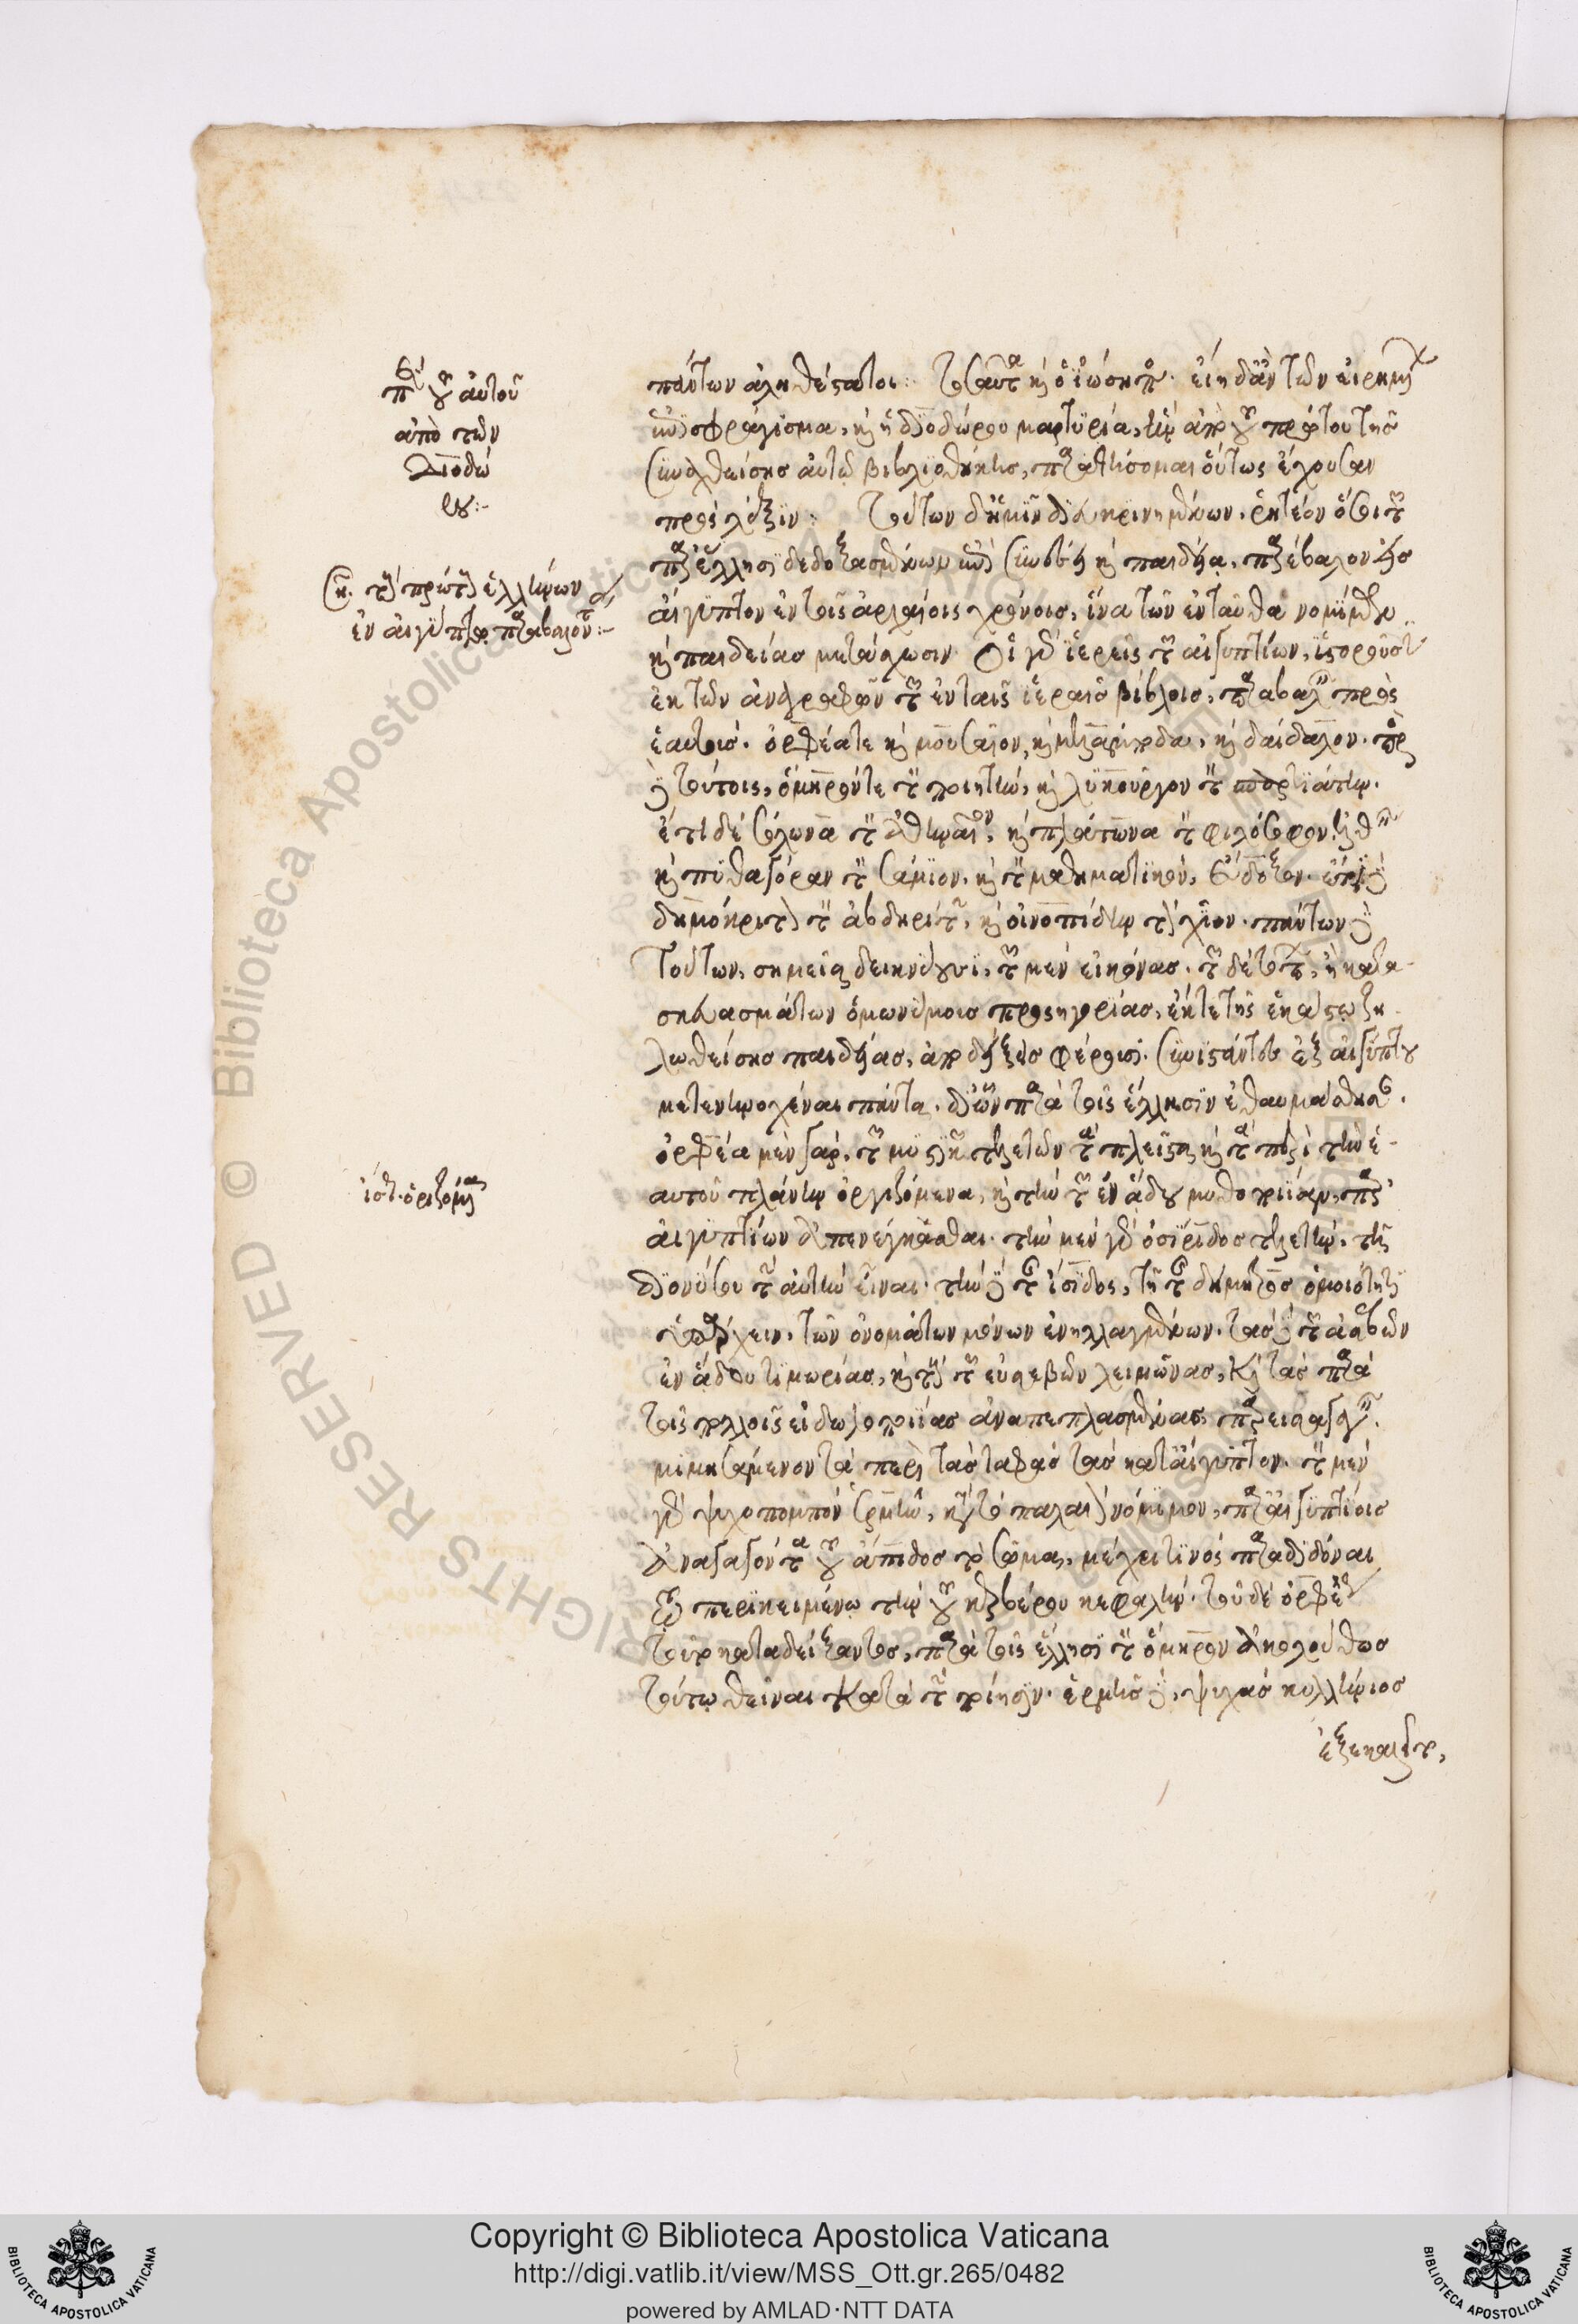 περὶ τοῦ αὐτοῦ
ἀπὸ τῶν
Διοδώ
ρου:-
τοὺς πρώτους ἑλλήνων
ἐν αἰγύπτῳ παραβαλόντας:-
ὀργιζόμενα
πάντων ἀληθέστατοι: ταῦτα καὶ ὁ ἰώσηπος. εἴη δ' ἂν τῶν εἰρημένων
ἐπισφράγισμα, καὶ ἡ διοδώρου μαρτυρία, ἣν ἀπὸ τοῦ πρώτου τῆς
συναχθείσης αὐτῷ βιβλιοθήκης, παραθήσομαι οὕτως ἔχουσαν
πρὸς λέξιν: τούτων δ' ἡμῖν διευκρινημένων. ῥητέον ὅσοι τῶν
παρ' ἕλλησι δεδοξασμένων ἐπὶ συνέσει καὶ παιδείᾳ. παρέβαλον εἰς
αἴγυπτον ἐν τοῖς ἀρχαίοις χρόνοις, ἵνα τῶν ἐνταῦθα νομίμων
καὶ παιδείας μετάσχωσιν. οἱ γὰρ ἱερεῖς τῶν αἰγυπτίων, ἱστοροῦσιν
ἐκ τῶν ἀναγραφῶν τῶν ἐν ταῖς ἱεραῖς βίβλοις, παραβαλεῖν πρὸς
ἑαυτοὺς. ὀρφέα τε καὶ μουσαῖον, καὶ μελάμποδα, καὶ δαίδαλον. πρὸς
δὲ τούτοις, ὅμηρόν τε τὸν ποιητὴν, καὶ λυκοῦργον τὸν σπαρτιάτην.
ἔτι δὲ σόλωνα τὸν ἀθηναῖον, καὶ πλάτωνα τὸν φιλόσοφον. ἐλθεῖν
καὶ πυθαγόραν τὸν σάμιον. καὶ τὸν μαθηματικὸν, εὔδοξον. ἔτι δὲ
δημόκριτον τὸν ἀβδηρίτην, καὶ οἰνοπίδην τὸν χῖον. πάντων δὲ
τούτων, σημεῖα δεικνύουσι, τῶν μὲν εἰκόνας. τῶν δὲ τόπων, ἢ κατα-
σκευασμάτων ὁμωνύμους προσηγορίας, ἔκ τε τῆς ἑκάστῳ ζη-
λωθείσης παιδείας, ἀποδείξεις φέρουσι. συνιστάντες ἐξ αἰγύπτου
μετενηνοχέναι πάντα. δι' ὧν παρὰ τοῖς ἕλλησιν ἐθαυμάσθησαν.
ὀρφέα μὲν γὰρ. τῶν μυστικῶν τελετῶν τὰ πλεῖστα, καὶ τὰ περὶ τὴν ἑ-
αυτοῦ πλάνην ὀργιζόμενα, καὶ τὴν τῶν ἐν ἅδου μυθοποιίαν, παρ'
αἰγυπτίων ἀπενέγκασθαι. τὴν μὲν γὰρ ὀσίριδος τελετὴν. τῇ
διονύσου τὴν αὐτὴν εἶναι. τὴν δὲ τῆς ἴσιδος, τῇ τῆς δήμητρος ὁμοιότητι
ὑπάρχειν. τῶν ὀνομάτων μόνων ἐνηλλαγμένων. τὰς δὲ τῶν ἀσεβῶν
ἐν ἅδου τιμωρίας, καὶ τοὺς τῶν εὐσεβῶν λειμῶνας, καὶ τὰς παρὰ
τοῖς πολλοῖς εἰδωλοποιίας ἀναπεπλασμένας, παρεισαγαγεῖν.
μιμησάμενον τὰ περὶ τὰς ταφὰς τὰς κατ' αἴγυπτον. τὸν μὲν
γὰρ ψυχοπομπὸν ἑρμῆν, κατὰ τὸ παλαιὸν νόμιμον, παρ' αἰγυπτίοις
ἀναγαγόντα τοῦ ἄπιδος τὸ σῶμα, μέχρι τινὸς παραδιδόναι
τῷ περικειμένῳ τὴν τοῦ κερβέρου κεφαλὴν. τοῦ δὲ ὀρφέως
τοῦτο καταδείξαντος, παρὰ τοῖς ἕλλησι τὸν ὅμηρον ἀκολούθως
τούτῳ θεῖναι κατὰ τὴν ποίησιν. ἑρμῆς δὲ, ψυχὰς κυλλήνιος
ἐξεκαλεῖτο,
Copyright © Biblioteca Apostolica Vaticana
http://digi.vatlib.it/view/MSS_Ott.gr.265/0482
powered by AMLAD·NTT DATA